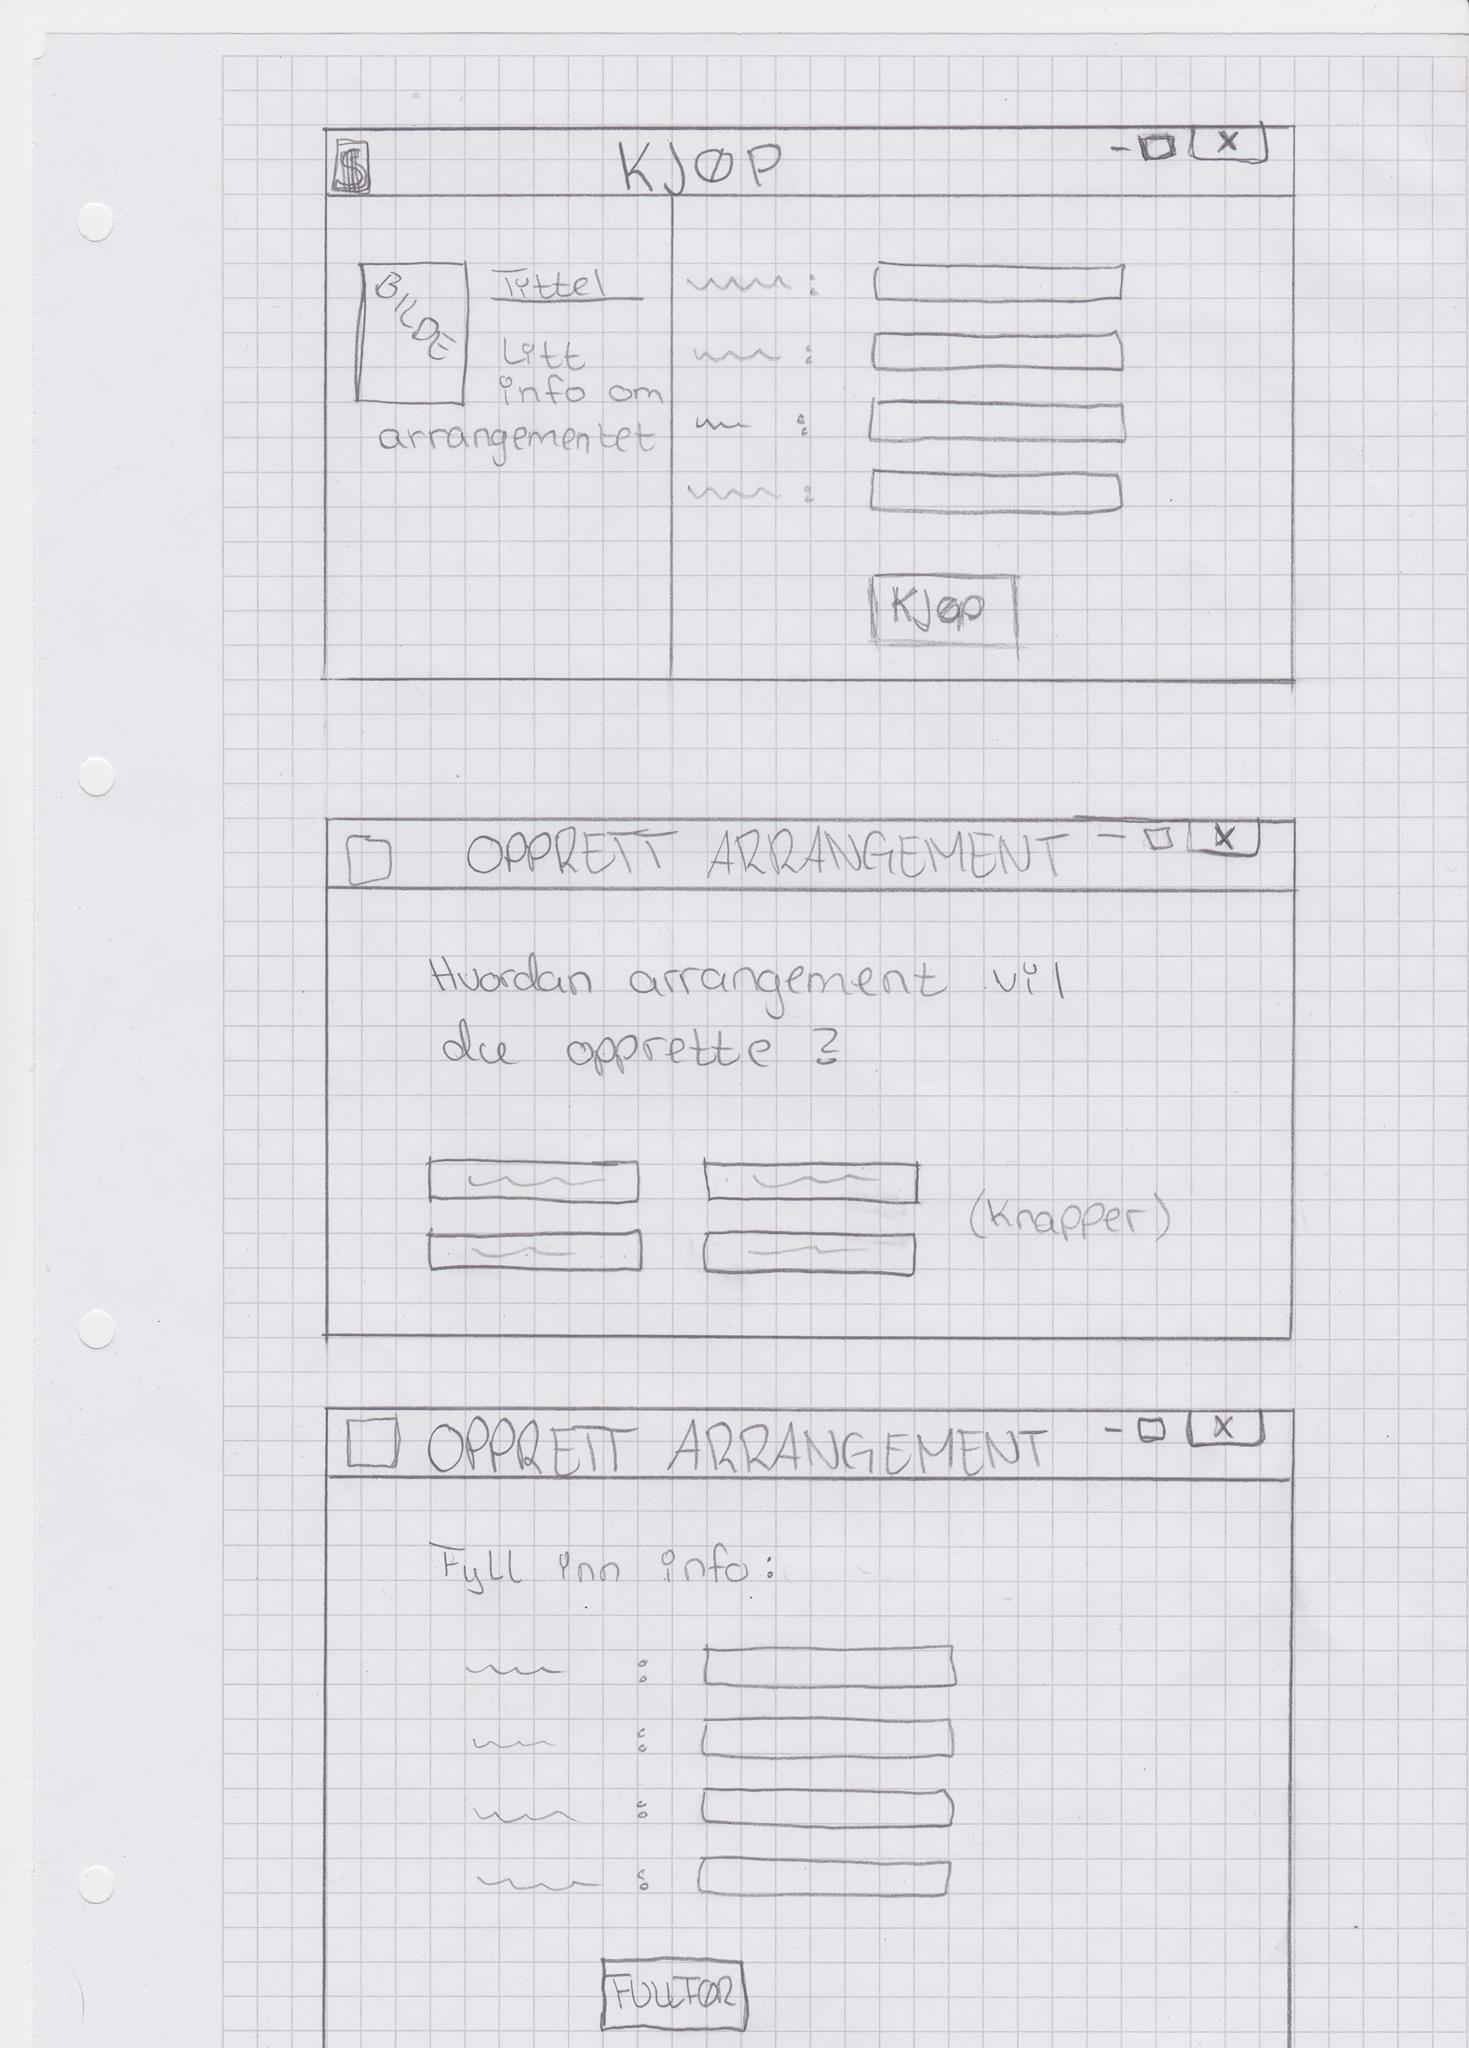 $ KJØP - X
BILDE
Tittel
Litt
info om
arrangementet
:
:
:
:
KJØP
OPPRETT ARRANGEMENT - X
Hvordan arrangement vil
du opprette ?
(Knapper)
OPPRETT ARRANGEMENT - X
Fyll inn info:
:
:
:
:
FULLFØR